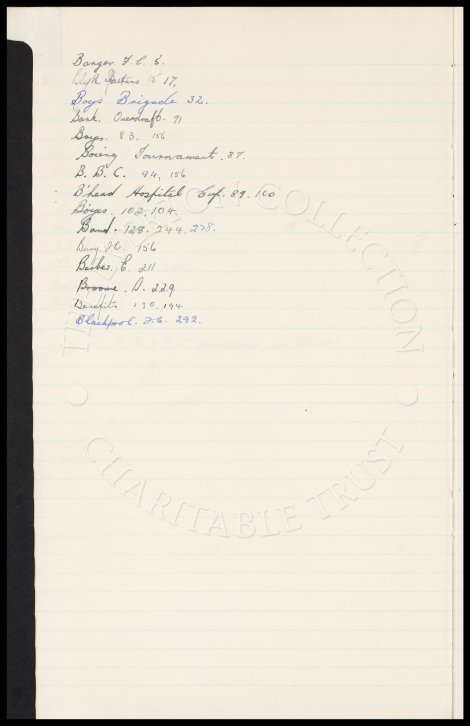 Bangor F.C. 6.
Blyth Spartans 15 17.
Boys Brigade 32.
Bank Overdraft. 71
Boyes. 83. 156
Boxing Tournament. 87.
B.B.C. 94, 156
B'head Hospital Cup. 89. 100
Boyes. 102. 104.
Band. 128. 244. 278.
Bury F.C. 156
Barber E. 211
Broome. D. 229
Benefits 190. 194
Blackpool. F.C. 292.
COLLECTION
CHARITABLE TRUST